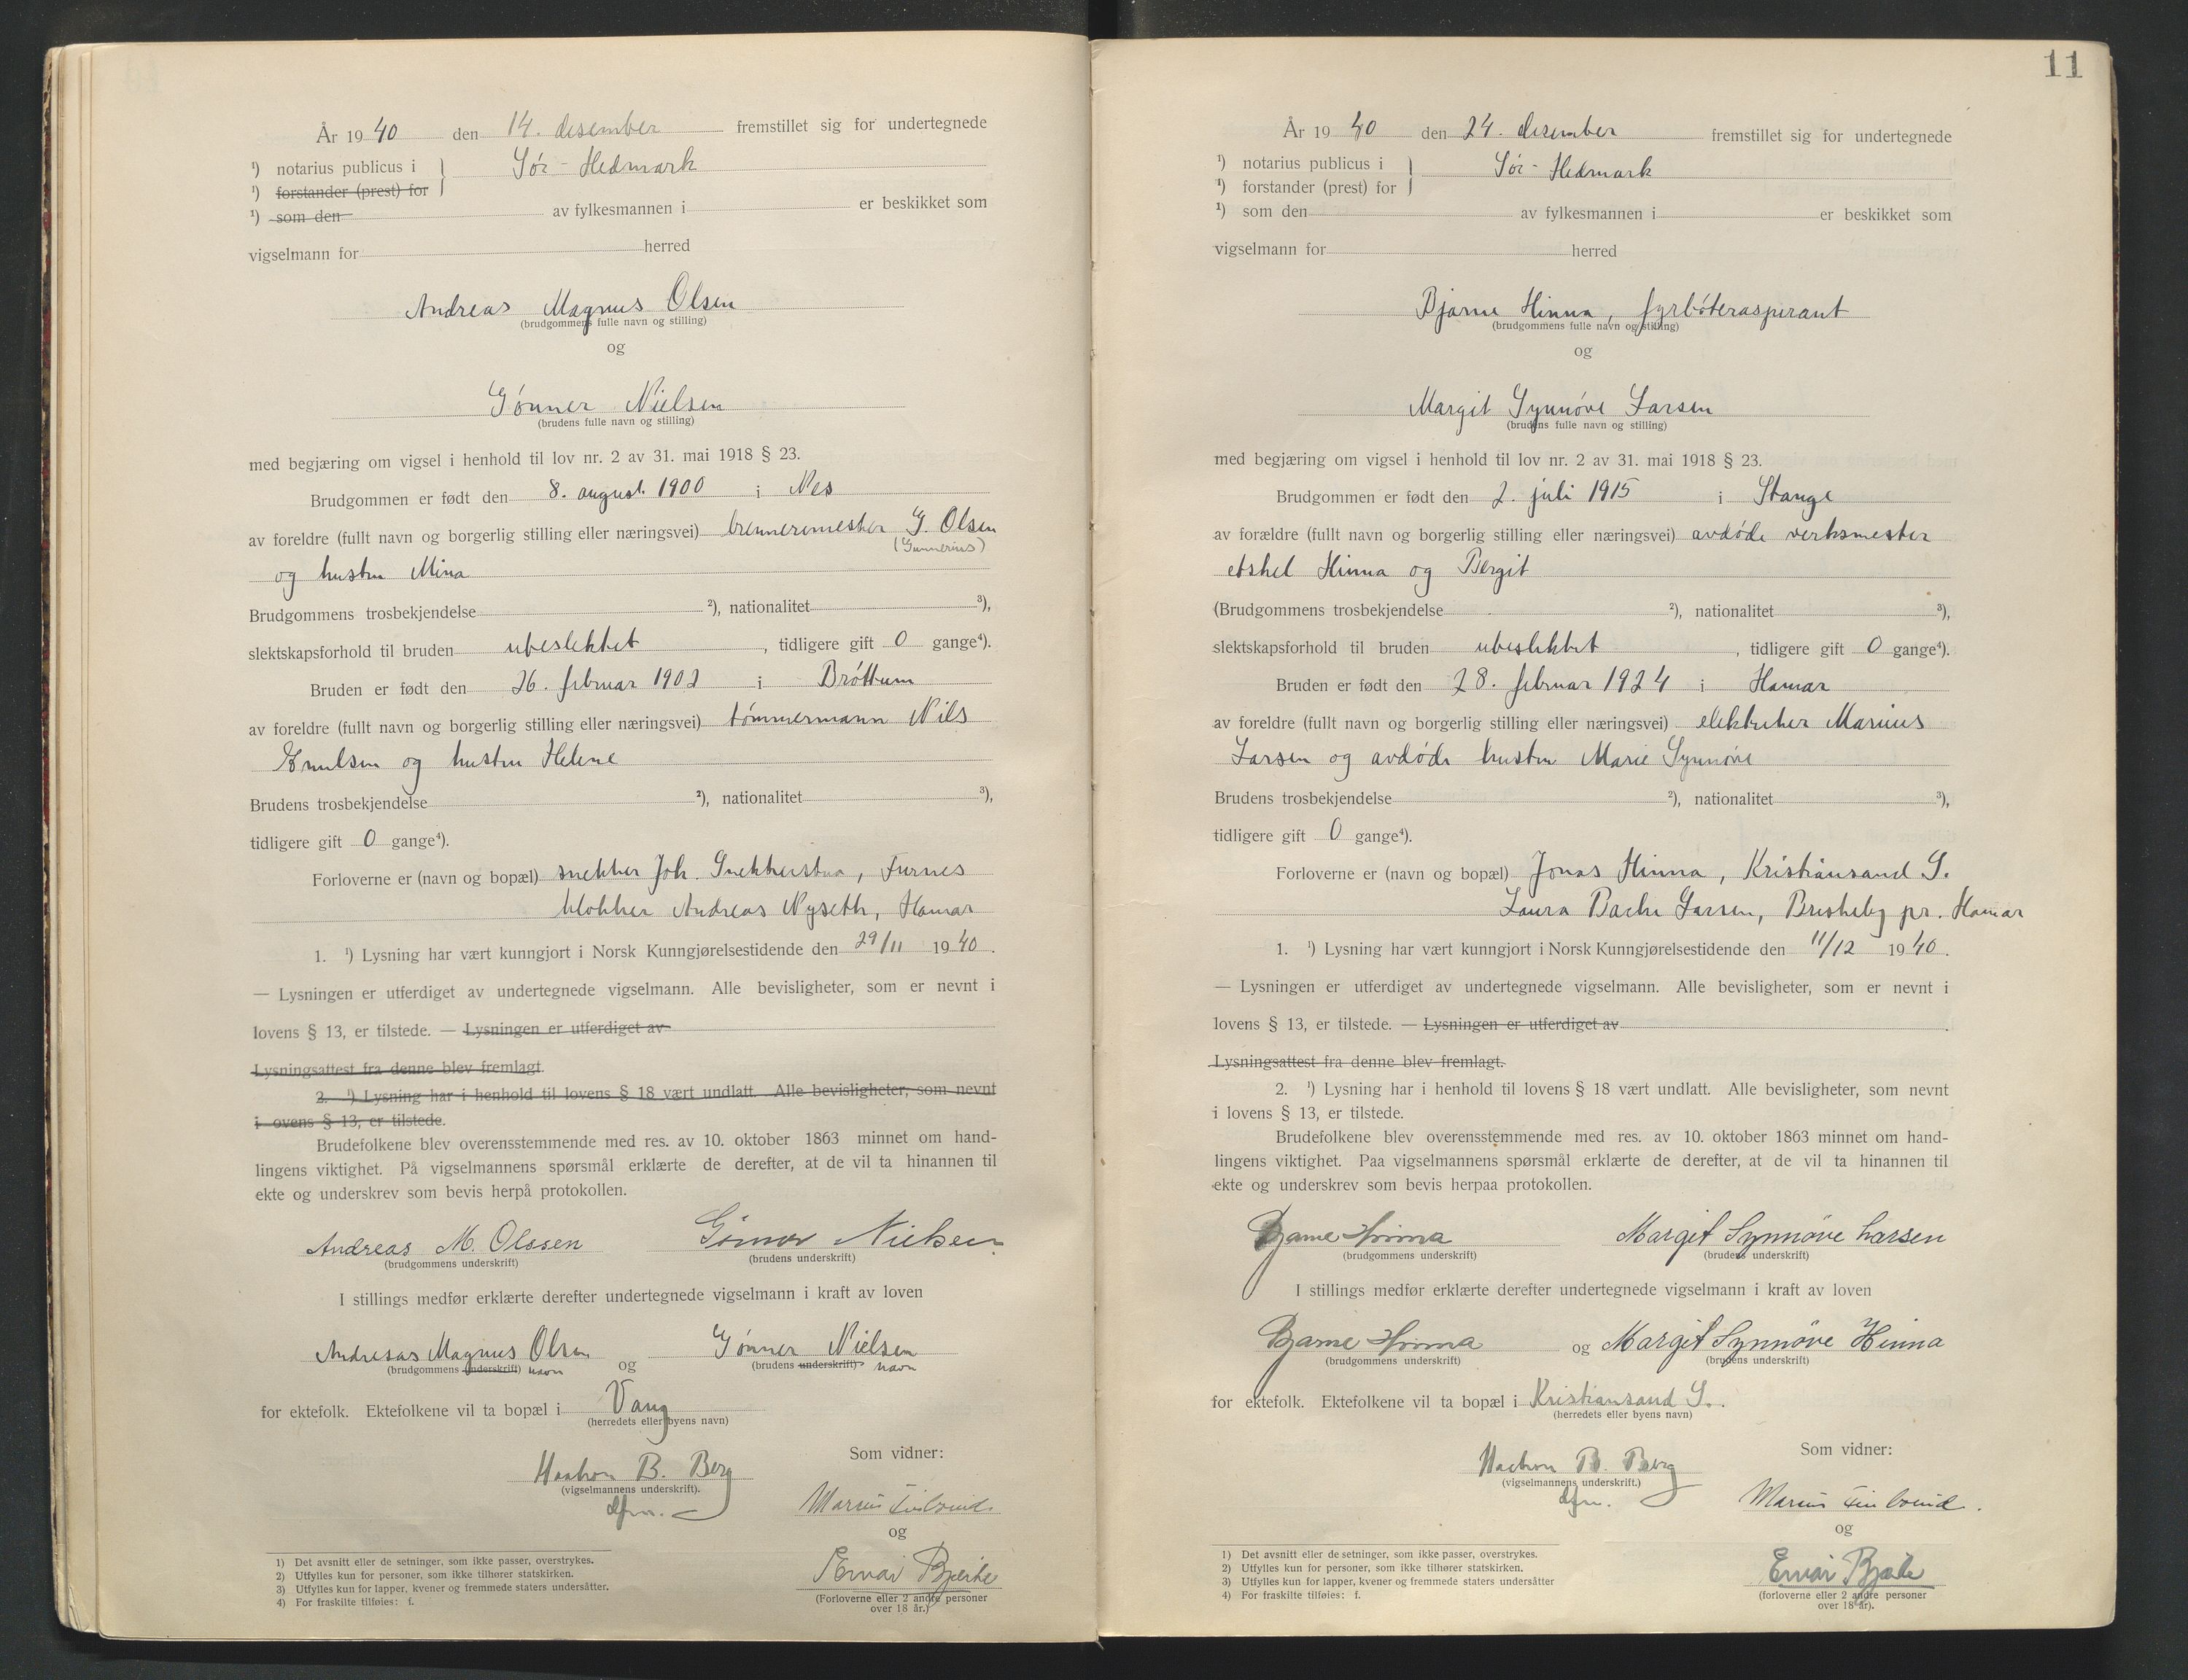 År 19 40 den 14. desember fremstillet sig for undertegnede
¹) notarius publicus i } Sør-Hedmark
¹) forstander (prest) for
¹) som den av fylkesmannen i er beskikket som
vigselmann for herred
Andreas Magnus Olsen
(brudgommens fulle navn og stilling)
og
Gønner Nielsen
(brudens fulle navn og stilling)
med begjæring om vigsel i henhold til lov nr. 2 av 31. mai 1918 § 23.
Brudgommen er født den 8. august 1900 i Nes
av foreldre (fullt navn og borgerlig stilling eller næringsvei) brennerimester G. Olsen
(Gunnerius)
og hustru Mina
Brudgommens trosbekjendelse ²), nationalitet ³),
slektskapsforhold til bruden ubeslektet, tidligere gift 0 gange⁴).
Bruden er født den 26. februar 1902 i Brøttum
av foreldre (fullt navn og borgerlig stilling eller næringsvei) tømmermann Nils
Knutsen og hustru Helene
Brudens trosbekjendelse ²), nationalitet ³),
tidligere gift 0 gange⁴).
Forloverne er (navn og bopæl) snekker Joh. Snekkerstua, Furnes
klokker Andreas Nyseth, Hamar
1. ¹) Lysning har vært kunngjort i Norsk Kunngjørelsestidende den 29/11 1940.
— Lysningen er utferdiget av undertegnede vigselmann. Alle bevisligheter, som er nevnt i
lovens § 13, er tilstede. — Lysningen er utferdiget av
Lysningsattest fra denne blev fremlagt.
2. ¹) Lysning har i henhold til lovens § 18 vært undlatt. Alle bevisligheter, som nevnt
i ovens § 13, er tilstede.
Brudefolkene blev overensstemmende med res. av 10. oktober 1863 minnet om hand-
lingens viktighet. På vigselmannens spørsmål erklærte de derefter, at de vil ta hinannen til
ekte og underskrev som bevis herpå protokollen.
Andreas M. Olssen Gønner Nielsen
(brudgommens underskrift) (brudens underskrift)
I stillings medfør erklærte derefter undertegnede vigselmann i kraft av loven
Andreas Magnus Olsen og Gønner Nielsen
(brudgommens underskrift) navn (brudens underskrift) navn
for ektefolk. Ektefolkene vil ta bopæl i Vang
(herredets eller byens navn)
Som vidner:
Haakon B. Berg
(vigselmannens underskrift).
dfm.
Marius
og
Einar Bjerke
(Forloverne eller 2 andre personer
over 18 år.)
1) Det avsnitt eller de setninger, som ikke passer, overstrykes.
2) Utfylles kun for personer, som ikke tilhører statskirken.
3) Utfylles kun for lapper, kvener og fremmede staters undersåtter.
4) For fraskilte tilføies: f.
11
År 19 40 den 24. desember fremstillet sig for undertegnede
¹) notarius publicus i } Sør-Hedmark
¹) forstander (prest) for
¹) som den av fylkesmannen i er beskikket som
vigselmann for herred
Bjarne Hinna, fyrbøteraspirant
(brudgommens fulle navn og stilling)
og
Margit Synnøve Larsen
(brudens fulle navn og stilling)
med begjæring om vigsel i henhold til lov nr. 2 av 31. mai 1918 § 23.
Brudgommen er født den 2. juli 1915 i Stange
av forældre (fullt navn og borgerlig stilling eller næringsvei) avdøde verksmester
Hinna og Bergit
(Brudgommens trosbekjendelse ²), nationalitet ³),
slektskapsforhold til bruden ubeslektet, tidligere gift 0 gange⁴).
Bruden er født den 28. februar 1924 i Hamar
av foreldre (fullt navn og borgerlig stilling eller næringsvei) elektriker Marius
Larsen og avdøde hustru Marie Synnøve
Brudens trosbekjendelse ²), nationalitet ³),
tidligere gift 0 gange⁴).
Forloverne er (navn og bopæl) Jonas Hinna, Kristiansand S.
Laura Bache Larsen, Briskeby pr. Hamar
1. ¹) Lysning har vært kunngjort i Norsk Kunngjørelsestidende den 11/12 1940.
— Lysningen er utferdiget av undertegnede vigselmann. Alle bevisligheter, som er nevnt i
lovens § 13, er tilstede. — Lysningen er utferdiget av .
Lysningsattest fra denne blev fremlagt.
2. ¹) Lysning har i henhold til lovens § 18 vært undlatt. Alle bevisligheter, som nevnt
i lovens § 13, er tilstede.
Brudefolkene blev overensstemmende med res. av 10. oktober 1863 minnet om hand-
lingens viktighet. Paa vigselmannens spørsmål erklærte de derefter, at de vil ta hinannen til
ekte og underskrev som bevis herpaa protokollen.
Bjarne Hinna Margit Synnøve Larsen
(brudgommens underskrift) (brudens underskrift)
I stillings medfør erklærte derefter undertegnede vigselmann i kraft av loven
Bjarne Hinna og Margit Synnøve Hinna
(brudgommens underskrift) (brudens underskrift)
for ektefolk. Ektefolkene vil ta bopæl i Kristiansand S.
(herredets eller byens navn)
Som vidner:
Haakon B. Berg
(vigselmannens underskrift.)
dfm.
Marius
og
Einar Bjerke
(forloverne eller 2 andre personer
over 18 år).
1) Det avsnitt eller de setninger, som ikke passer, overstrykes.
2) Utfylles kun for personer, som ikke tilhører statskirken.
3) Utfylles kun for lapper, kvener og fremmede staters undersåtter
4) For fraskilte tilføies: f.